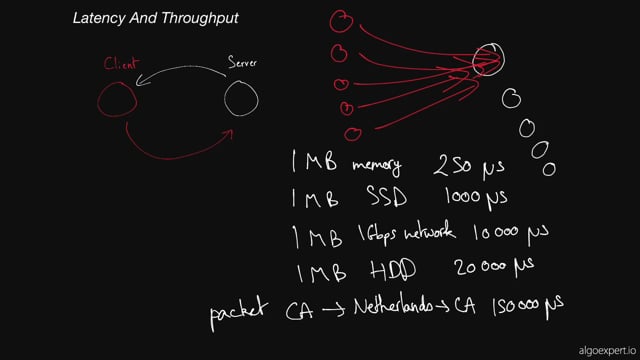 Latency And Throughput
Client
Server
1 MB memory 250 μs
1 MB SSD 1000 μs
1 MB 1Gbps network 10 000 μs
1 MB HDD 20 000 μs
packet CA → Netherlands → CA 150 000 μs
algoexpert.io